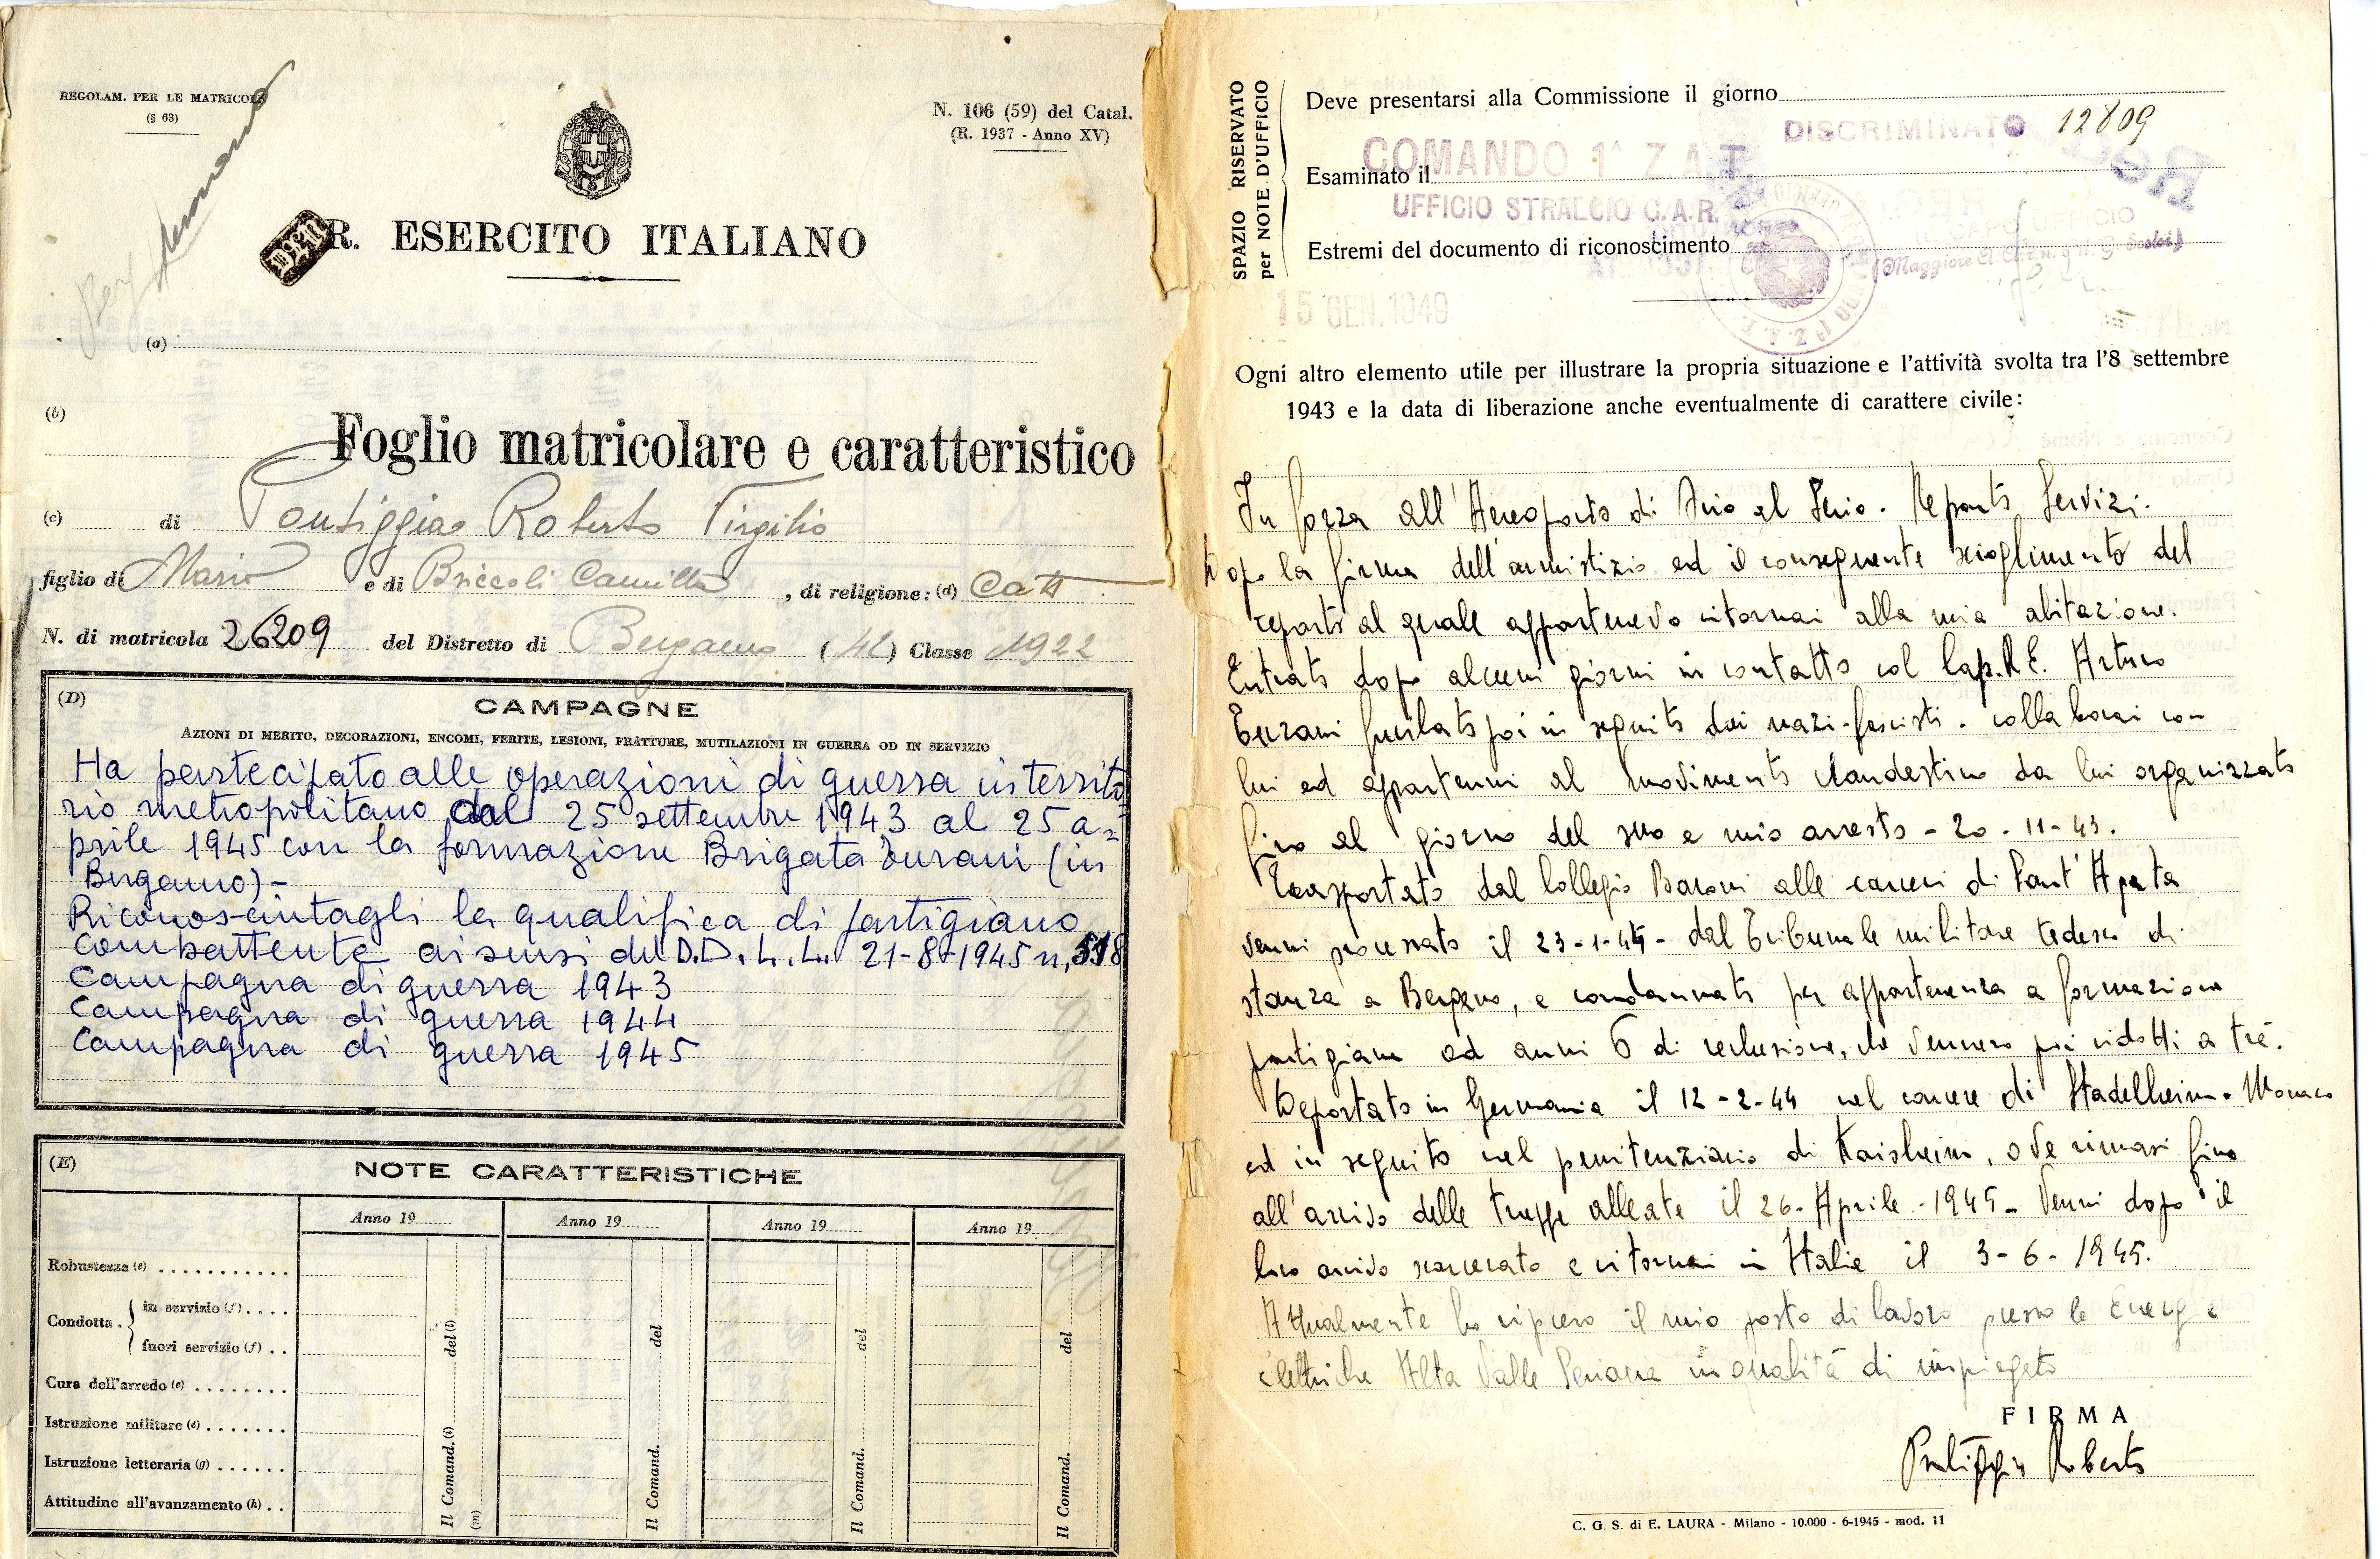 REGOLAM. PER LE MATRICOLE
(§ 63)
N. 106 (59) del Catal.
(R. 1937 - Anno XV)
R. ESERCITO ITALIANO
(a)
(b)
Foglio matricolare e caratteristico
(c) di Pontiggia Roberto Virgilio
figlio di Mario e di Briccoli Camilla, di religione: (d) Catt
N. di matricola 26209 del Distretto di Bergamo (42) Classe 1922
(D)
CAMPAGNE
AZIONI DI MERITO, DECORAZIONI, ENCOMI, FERITE, LESIONI, FRATTURE, MUTILAZIONI IN GUERRA OD IN SERVIZIO
Ha partecipato alle operazioni di guerra in territo=
rio metropolitano dal 25 settembre 1943 al 25 a=
prile 1945 con la formazione Brigata Turani (in
Bergamo) -
Riconosciutagli la qualifica di partigiano
combattente ai sensi del D.D.L.L. 21-8-1945 n, 518
Campagna di guerra 1943
Campagna di guerra 1944
Campagna di guerra 1945
(E)
NOTE CARATTERISTICHE
Anno 19 Anno 19 Anno 19 Anno 19
Robustezza (e)
Condotta . in servizio (f)
fuori servizio (f)
Cura dell'arredo (e)
Istruzione militare (e)
Istruzione letteraria (g)
Attitudine all'avanzamento (h)
Il Comand. (i) del (l)
(m)
Il Comand. del
Il Comand. del
Il Comand. del
SPAZIO RISERVATO
per NOTE D'UFFICIO
Deve presentarsi alla Commissione il giorno
DISCRIMINATO 12809
COMANDO 1ª Z.A.T.
Esaminato il
UFFICIO STRALCIO C.A.R.
Estremi del documento di riconoscimento
15 GEN. 1949
Ogni altro elemento utile per illustrare la propria situazione e l'attività svolta tra l'8 settembre
1943 e la data di liberazione anche eventualmente di carattere civile:
In forza all'Aereoporto di Orio al Serio. Reparto Servizi.
Dopo la firma dell'armistizio ed il conseguente scioglimento del
reparto al quale appartenevo ritornai alla mia abitazione.
Entrato dopo alcuni giorni in contatto col Cap. R.E. Arturo
Turani fucilato poi in seguito dai nazi-fascisti. collaborai con
lui ed appartenni al movimento clandestino da lui organizzato
fino al giorno del suo e mio arresto - 20 - 11 - 43.
Trasportato dal Collegio Baroni alle carceri di Sant'Agata
venni processato il 23-1-44 - dal Tribunale militare tedesco di
stanza a Bergamo, e condannato per appartenenza a formazione
partigiana ad anni 6 di reclusione, che vennero poi ridotti a tre.
Deportato in Germania il 12-2-44 nel carcere di Stadelheim - Monaco
ed in seguito nel penitenziario di Kaisheim, ove rimasi fino
all'arrivo delle truppe alleate il 26 - Aprile - 1945 - Venni dopo il
loro arrivo scarcerato e ritornai in Italia il 3 - 6 - 1945.
Attualmente ho ripreso il mio posto di lavoro presso le Energie
Elettriche Alta Valle Seriana in qualità di impiegato
FIRMA
Pontiggia Roberto
C. G. S. di E. LAURA - Milano - 10.000 - 6-1945 - mod. 11